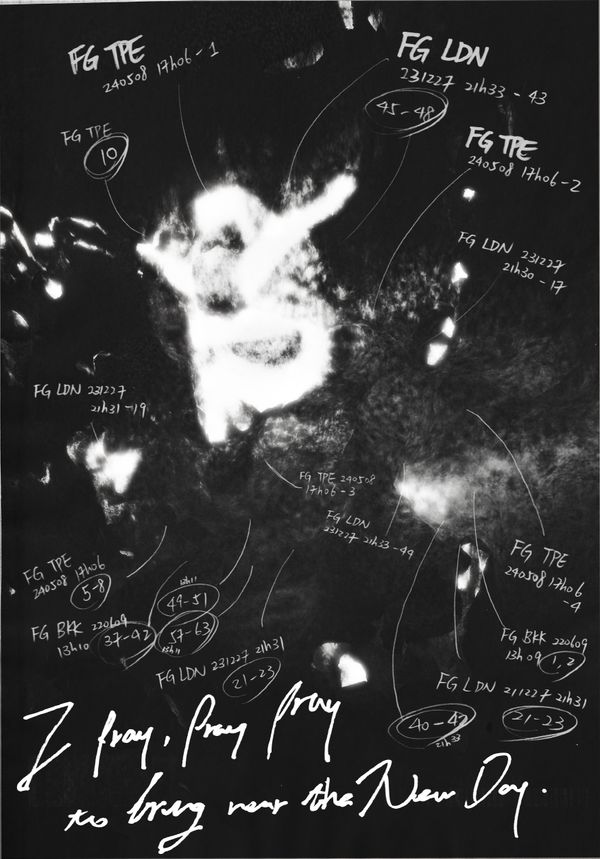 FG TPE
240508 17h06-1
FG LDN
231227 21h33-43
45-48
FG TPE
10
FG TPE
240508 17h06-2
FG LDN 231227
21h30-17
FG LDN 231227
21h31-19
FG TPE 240508
17h06-3
FG LDN
231227 21h33-49
FG TPE
240508 17h06
5-8
FG TPE
240508 17h06
-4
13h11
49-51
FG BKK 220609
13h10 37-42
57-63
13h11
FG BKK 220609
13h09 1,2
FG LDN 231227 21h31
21-23
FG LDN 211227 21h31
40-42
21h33
21-23
I pray, Pray Pray
to bring near the New Day.